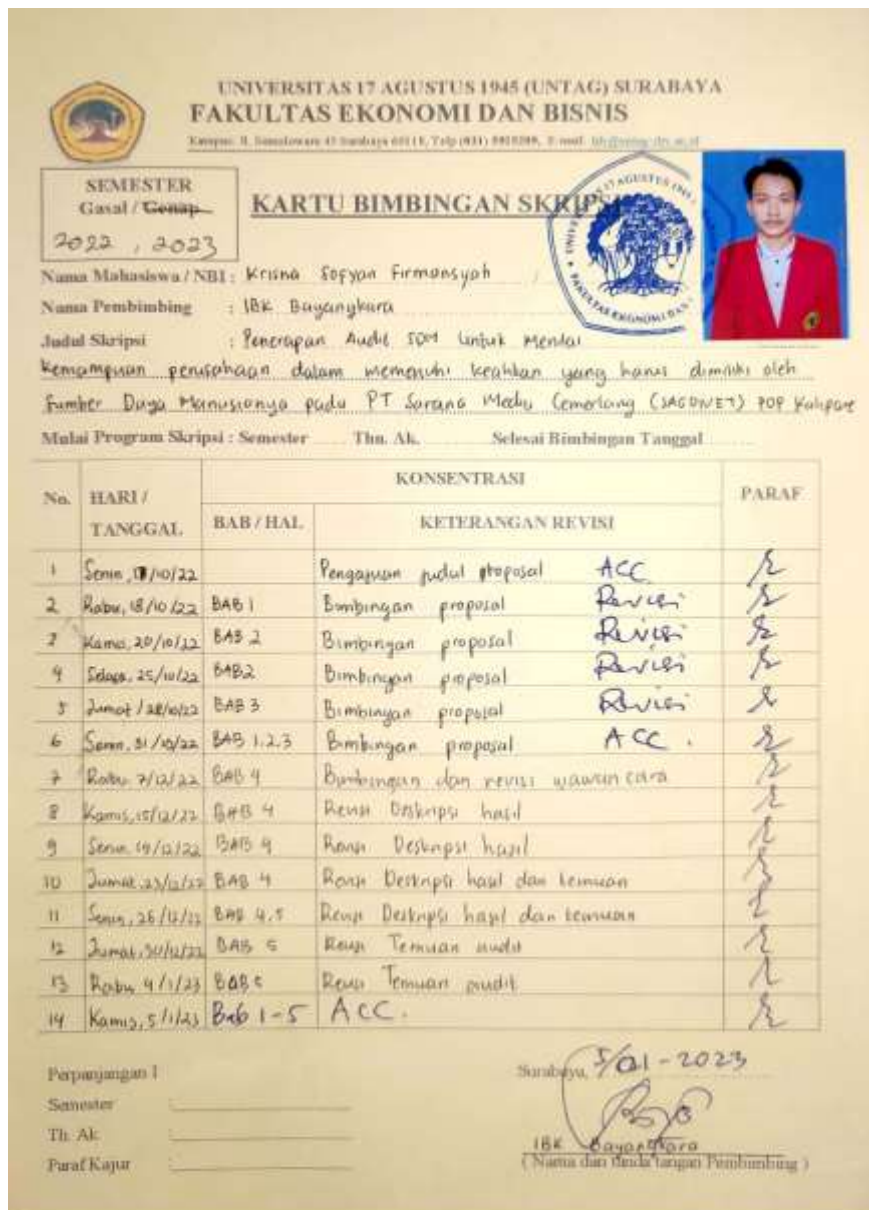 UNIVERSITAS 17 AGUSTUS 1945 (UNTAG) SURABAYA
FAKULTAS EKONOMI DAN BISNIS
Kampus: Jl. Semolowaru 45 Surabaya 60118, Telp (031)
SEMESTER
Gasal / Genap
2022 , 2023
KARTU BIMBINGAN SKRIPSI
UNIVERSITAS 17 AGUSTUS
FAKULTAS EKONOMI DAN
Nama Mahasiswa / NBI : Krisna Sofyan Firmansyah
Nama Pembimbing : IBK Bayangkara
Judul Skripsi : Penerapan Audit SDM Untuk Menilai
Kemampuan perusahaan dalam memenuhi keahlian yang harus dimiliki oleh
Sumber Daya Manusianya pada PT Sarana Media Cemerlang (SAGONET) POP Kalipare
Mulai Program Skripsi : Semester Thn. Ak. Selesai Bimbingan Tanggal
No. HARI / TANGGAL KONSENTRASI PARAF
BAB / HAL. KETERANGAN REVISI
1 Senin, /10/22 Pengajuan judul proposal ACC
2 Rabu, 18/10/22 BAB 1 Bimbingan proposal Revisi
3 Kamis, 20/10/22 BAB 2 Bimbingan proposal Revisi
4 Selasa, 25/10/22 BAB 2 Bimbingan proposal Revisi
5 Jumat / 28/10/22 BAB 3 Bimbingan proposal Revisi
6 Senin, 31/10/22 BAB 1.2.3 Bimbingan proposal ACC .
7 Rabu, 7/12/22 BAB 4 Bimbingan dan revisi wawancara
8 Kamis, 15/12/22 BAB 4 Revisi Deskripsi hasil
9 Senin, 19/12/22 BAB 4 Revisi Deskripsi hasil
10 Jumat, 23/12/22 BAB 4 Revisi Deskripsi hasil dan temuan
11 Senin, 26/12/22 BAB 4.5 Revisi Deskripsi hasil dan temuan
12 Jumat, 30/12/22 BAB 5 Revisi Temuan audit
13 Rabu 4/1/23 BAB 5 Revisi Temuan audit
14 Kamis, 5/1/23 Bab 1-5 ACC.
Perpanjangan I
Semester :
Th. Ak :
Paraf Kajur :
Surabaya, 5/01-2023
IBK Bayangkara
( Nama dan tanda tangan Pembimbing )